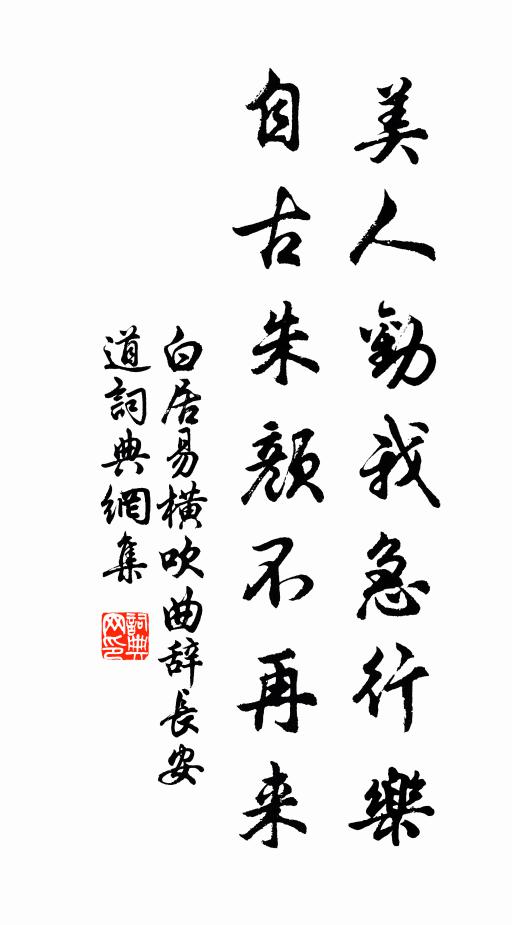 美人勸我急行樂
自古朱顏不再来
白居易橫吹曲辞長安
道詞典網集
詞典网印